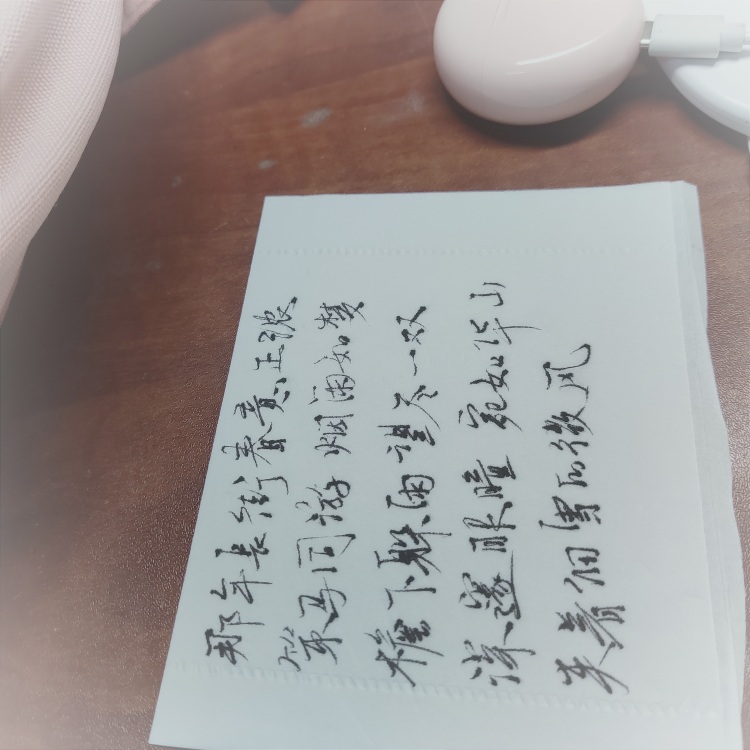 那年长街春意正浓
策马同游烟雨如梦
檐下躲雨望尽一双
深邃眼瞳宛如华山
夹着细雪的微风